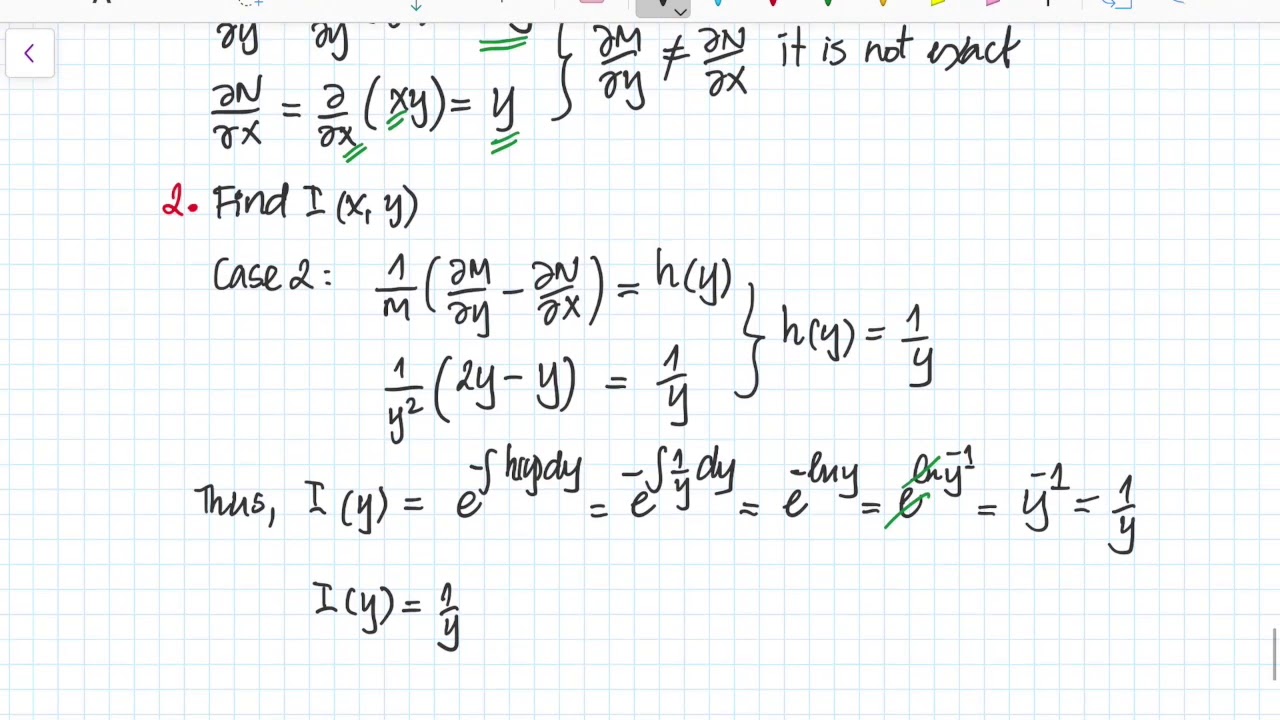 ∂y ∂y
∂M/∂y ≠ ∂N/∂x it is not exact
∂N/∂x = ∂/∂x (xy) = y
2. Find I (x, y)
Case 2: 1/M (∂M/∂y − ∂N/∂x) = h(y)
1/y² (2y − y) = 1/y
h(y) = 1/y
Thus, I (y) = e^(−∫h(y)dy) = e^(−∫1/y dy) = e^(−ln y) = e^(ln y⁻¹) = y⁻¹ = 1/y
I (y) = 1/y